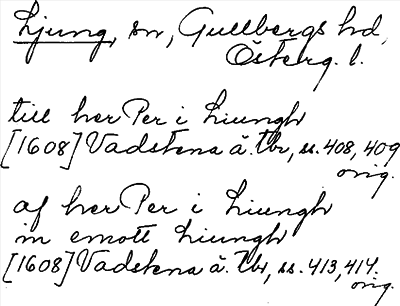 Ljung, sn, Gullbergs hd,
Österg. l.
till her Per i Liungh
[1608] Vadstena ä. Tbr, ss. 408, 409
orig.
af her Per i Liungh
in emott Liungh
[1608] Vadstena ä. Tbr, ss. 413, 414.
orig.